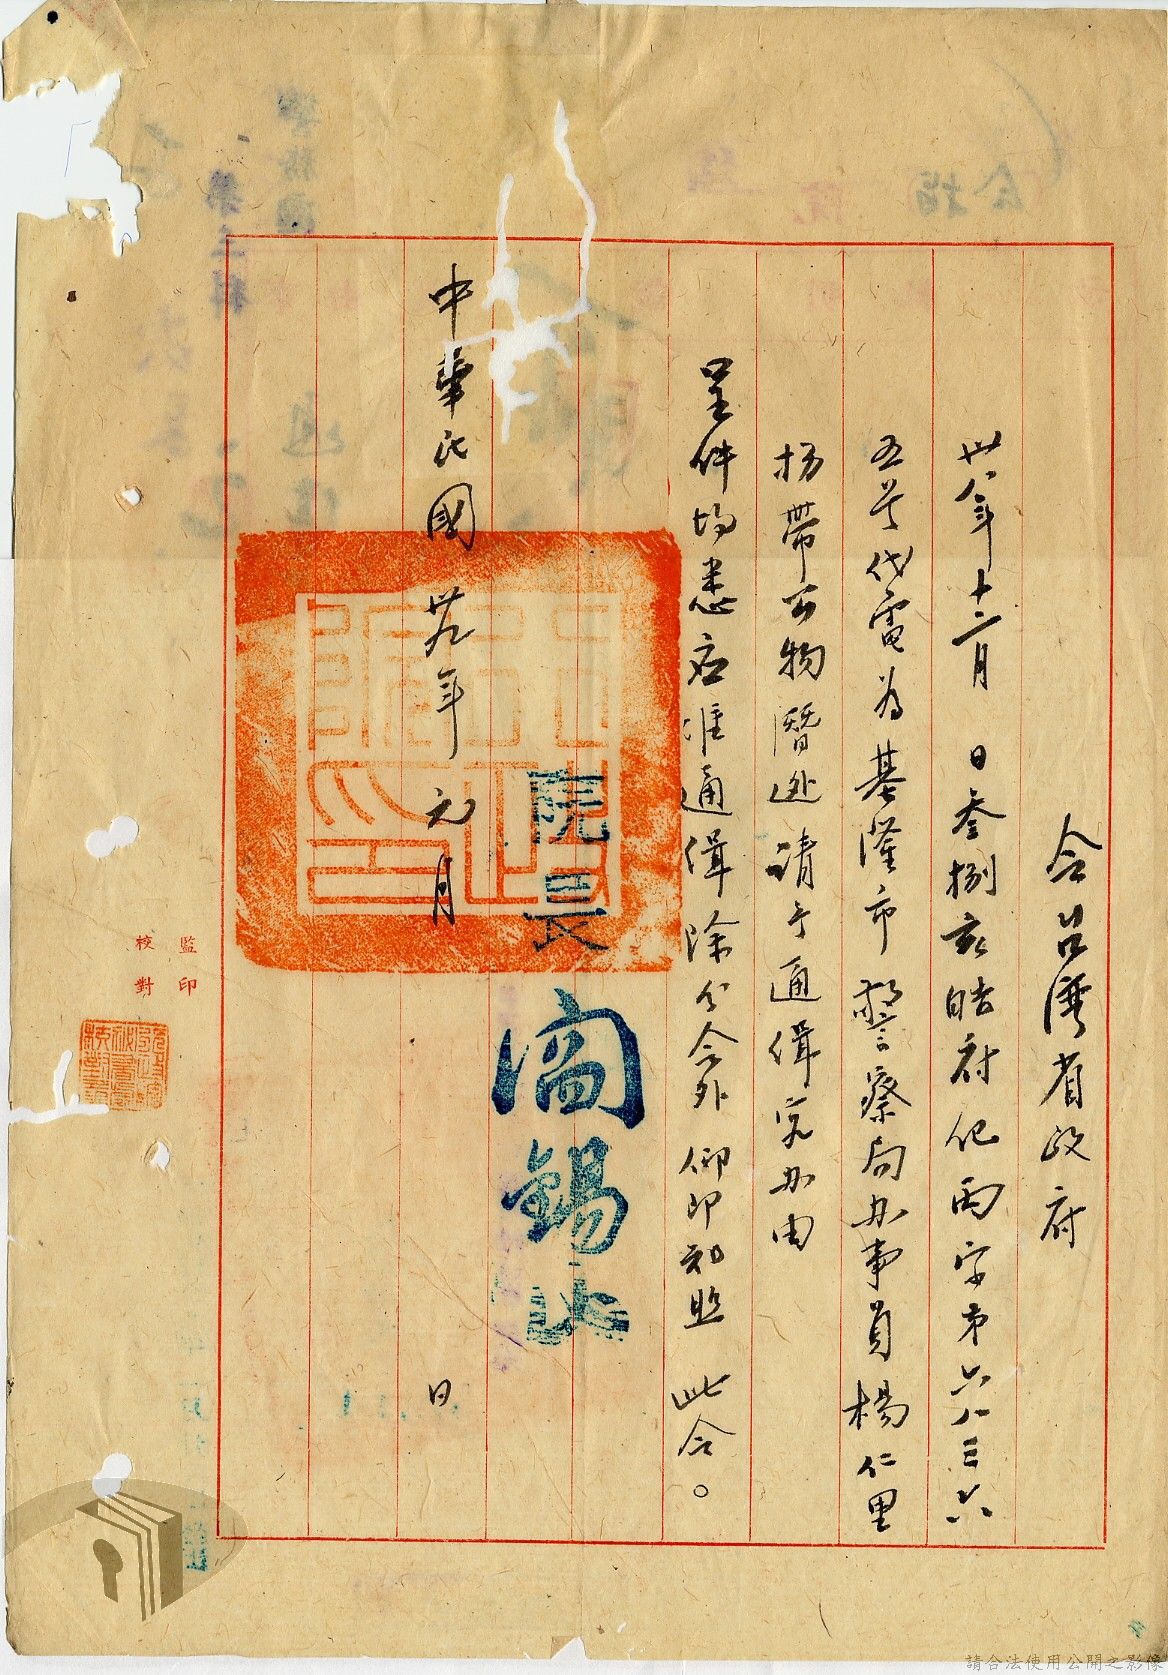 令台灣省政府
卅八年十二月　日叁捌亥晧府化丙字第六八三六
五号代電為基隆市警察局办事員楊仁里
捲帶公物潛逃請予通緝究办由
呈件均悉应准通緝除分令外仰即知照　此令。
院長閻錫山
中華民國　卅九年元月　日
監印
校對
請合法使用公開之影像